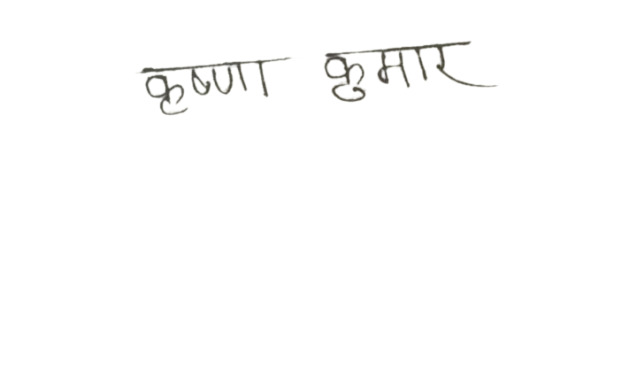 कृष्णा कुमार